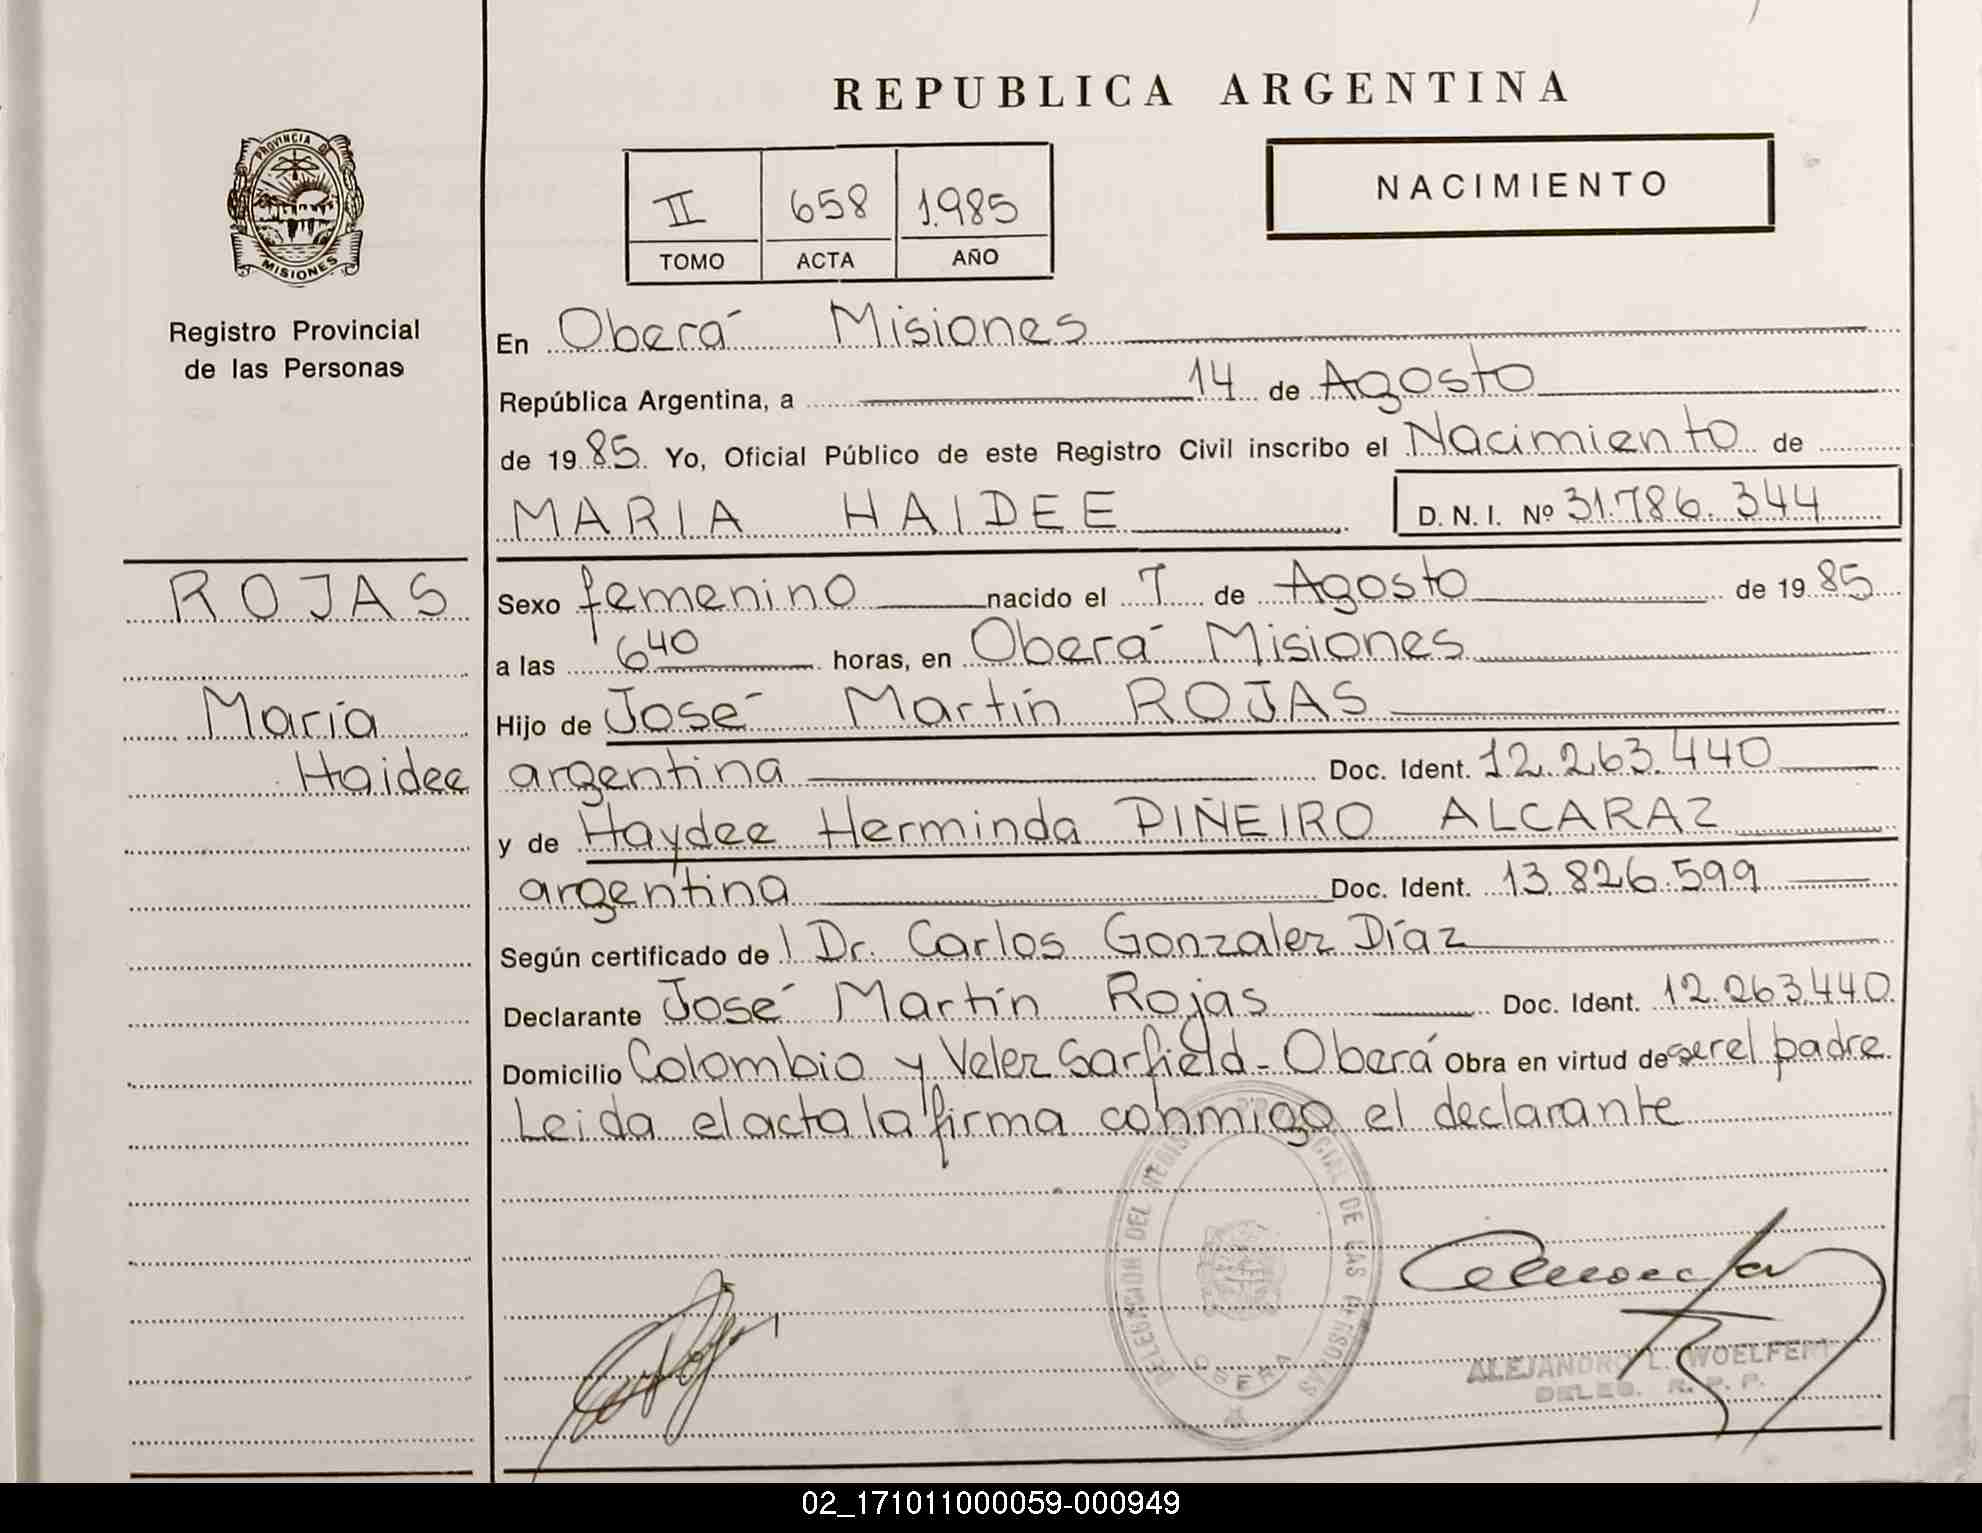 REPUBLICA ARGENTINA
PROVINCIA DE
MISIONES
Registro Provincial
de las Personas
II 658 1.985
TOMO ACTA AÑO
NACIMIENTO
En Oberá Misiones
República Argentina, a 14 de Agosto
de 1985. Yo, Oficial Público de este Registro Civil inscribo el Nacimiento de
MARIA HAIDEE D. N. I. Nº 31.786.344
ROJAS
María
Haidee
Sexo femenino nacido el 7 de Agosto de 1985
a las 6 40 horas, en Oberá Misiones
Hijo de José Martín ROJAS
argentina Doc. Ident. 12.263.440
y de Haydee Herminda PIÑEIRO ALCARAZ
argentina Doc. Ident. 13.826.599
Según certificado de l Dr. Carlos Gonzalez Díaz
Declarante José Martín Rojas Doc. Ident. 12.263.440
Domicilio Colombio y Velez Sarfield - Oberá Obra en virtud de ser el padre
Leida el acta la firma conmigo el declarante
DELEGACION DEL REGISTRO PROVINCIAL DE LAS PERSONAS
OBERA
ALEJANDRO L. WOELFERT
DELEG. R. P. P.
02_171011000059-000949